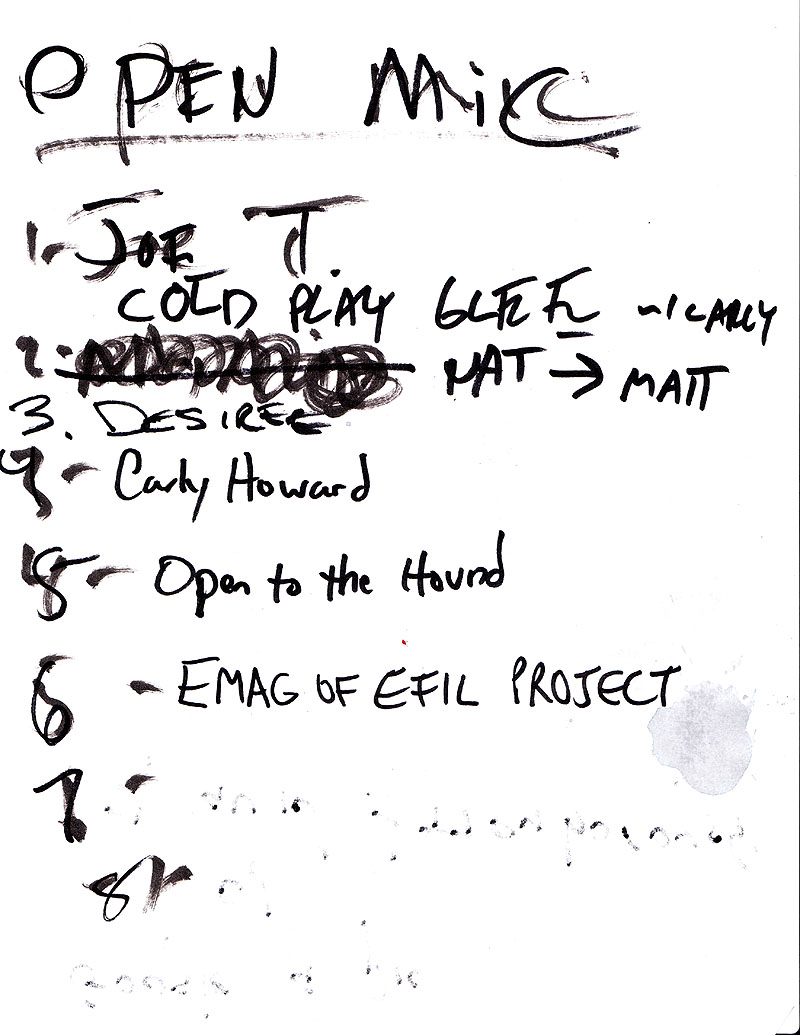 OPEN MIC
1- JOE T.
COLD PLAY GLEE w/ CARLY
2. MAT → MATT
3. DESIREE
4 - Carly Howard
5 - Open to the Hound
6 - EMAG OF EFIL PROJECT
7 -
8 -